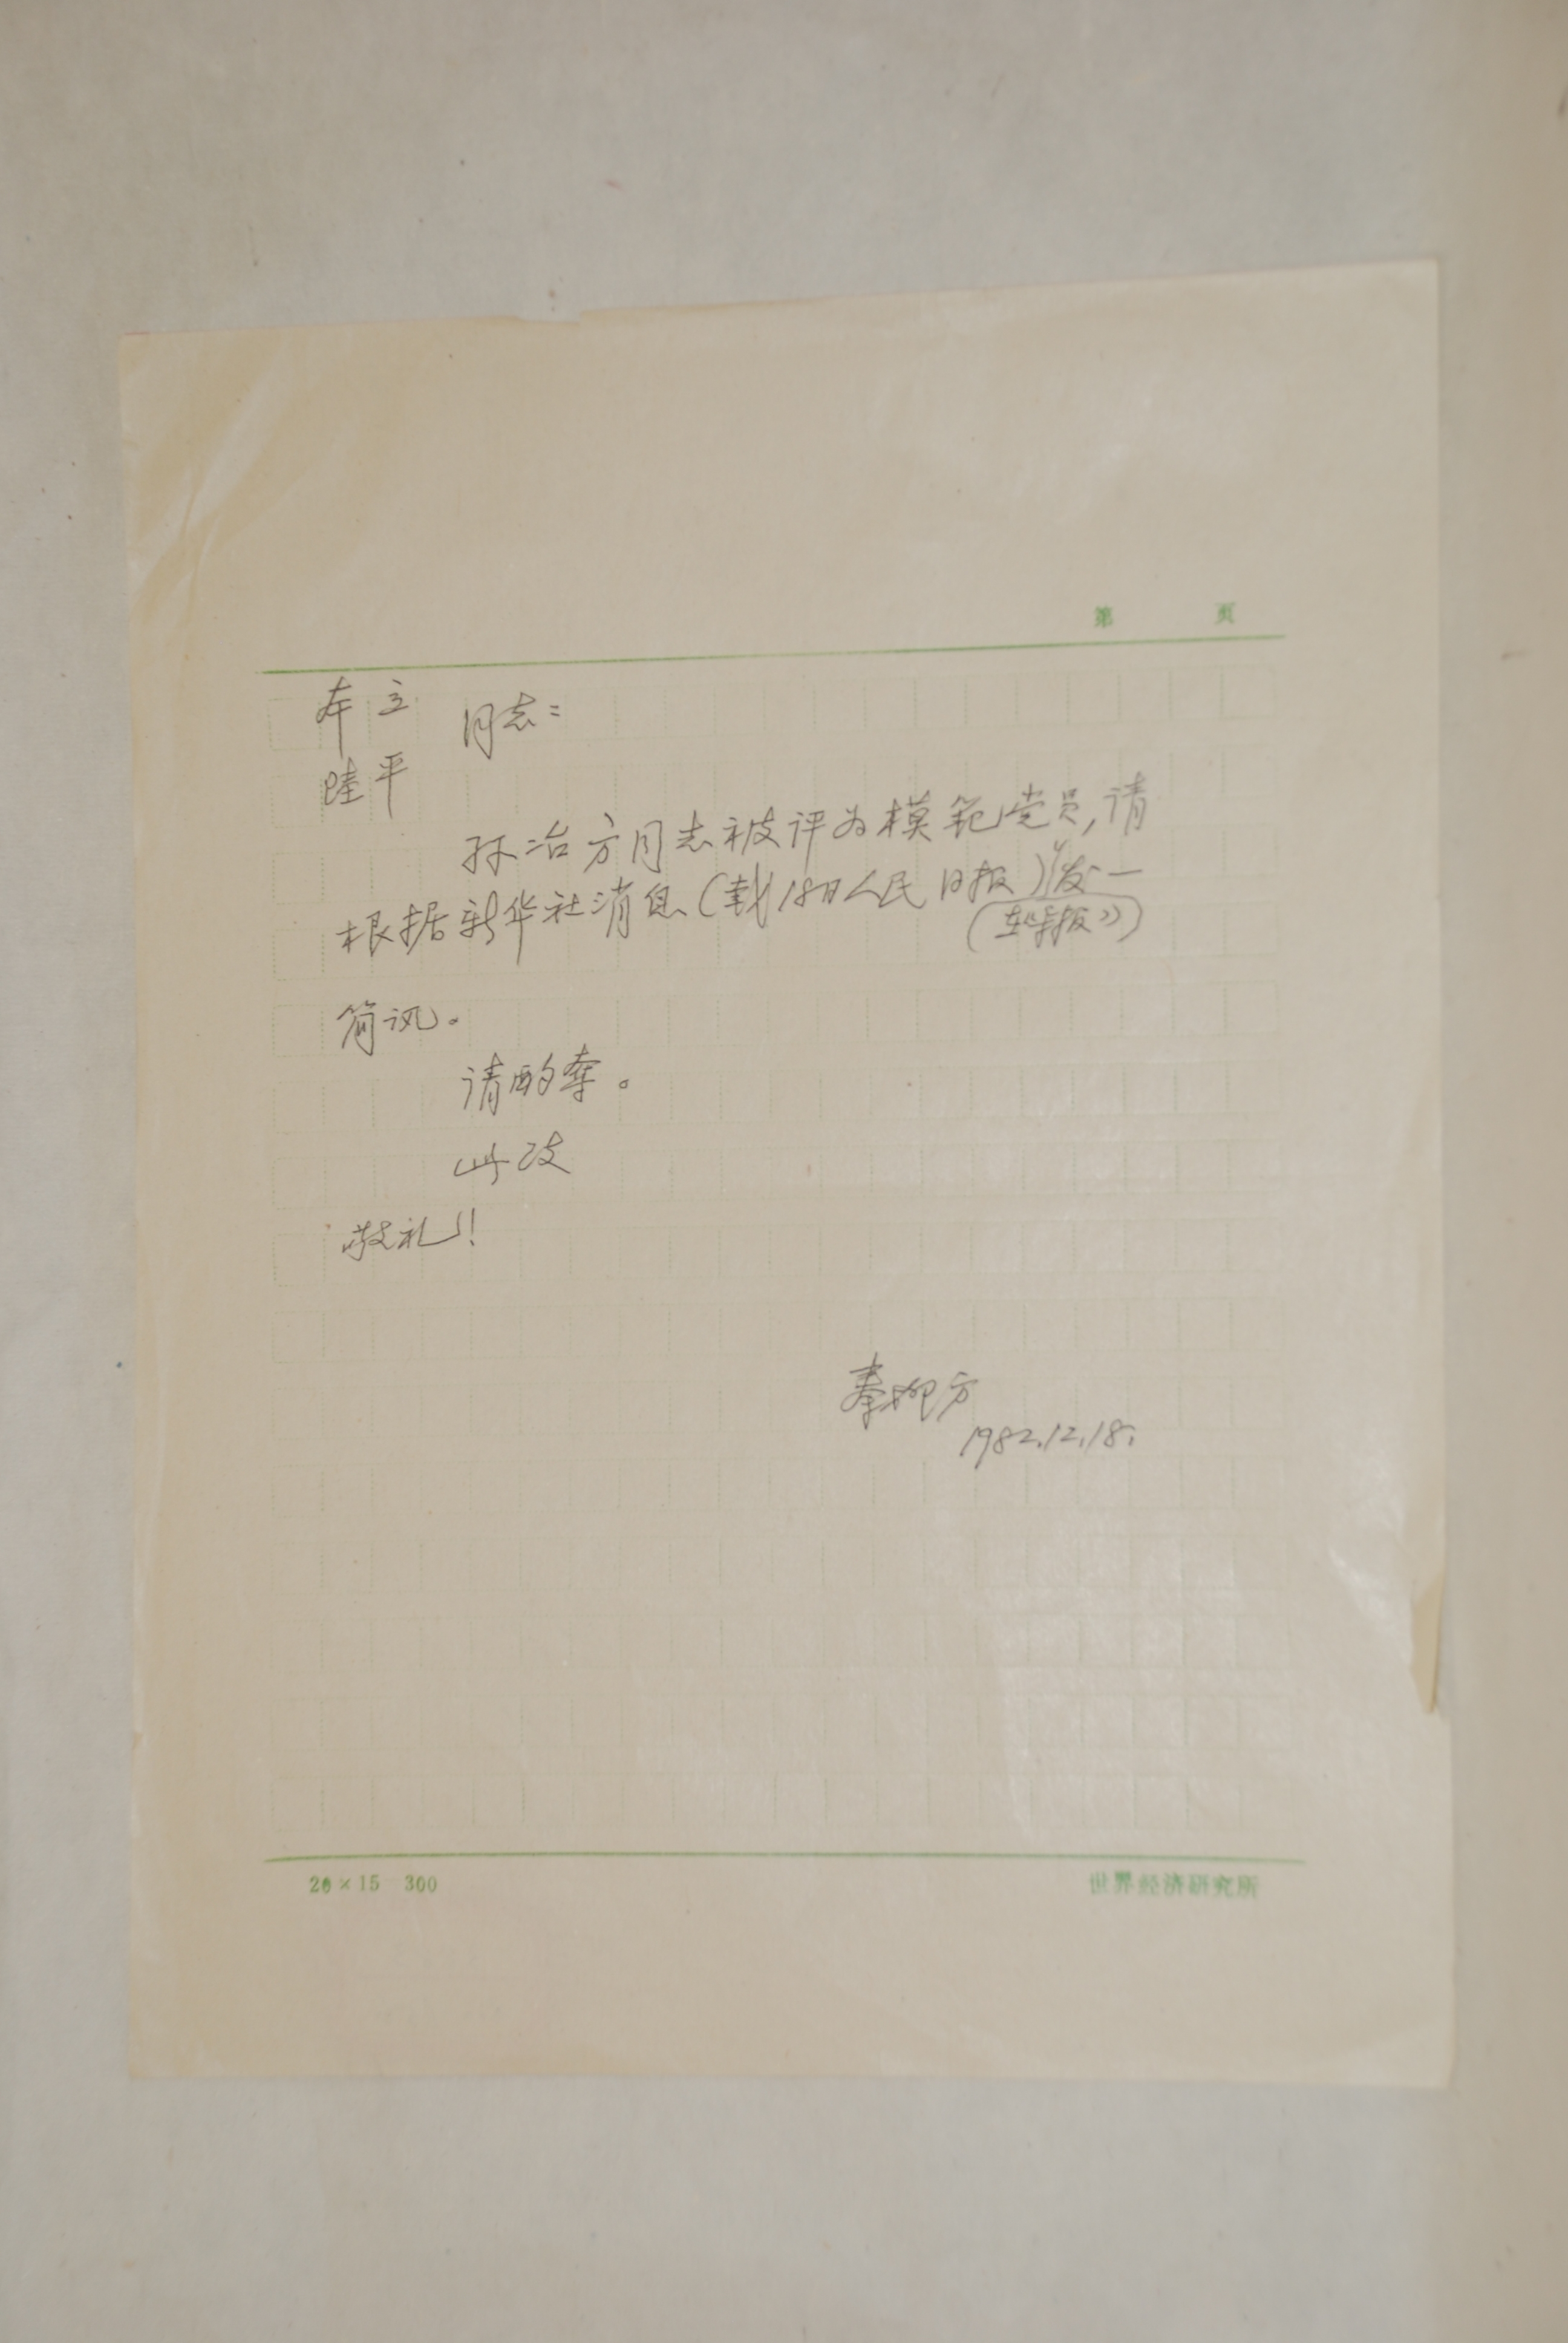 第 页
本立 同志：
畦平
孙冶方同志被评为模范党员，请
根据新华社消息（载18日人民日报）发一
（在《导报》）
简讯。
请酌夺。
此致
敬礼！
秦柳方
1982.12.18.
20×15 300
世界经济研究所